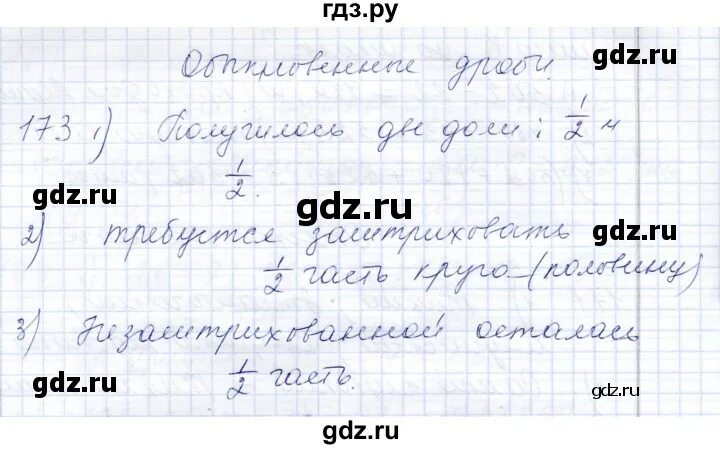 гдз.ру
Обыкновенные дроби.
173 1) Получилось две доли: 1/2 и
gdz.ru gdz.ru
1/2.
gdz.ru
2) требуется заштриховать
gdz.ru gdz.ru
1/2 часть круга (половину)
3) Незаштрихованной осталась
gdz.ru gdz.ru
1/2 часть.
gdz.ru